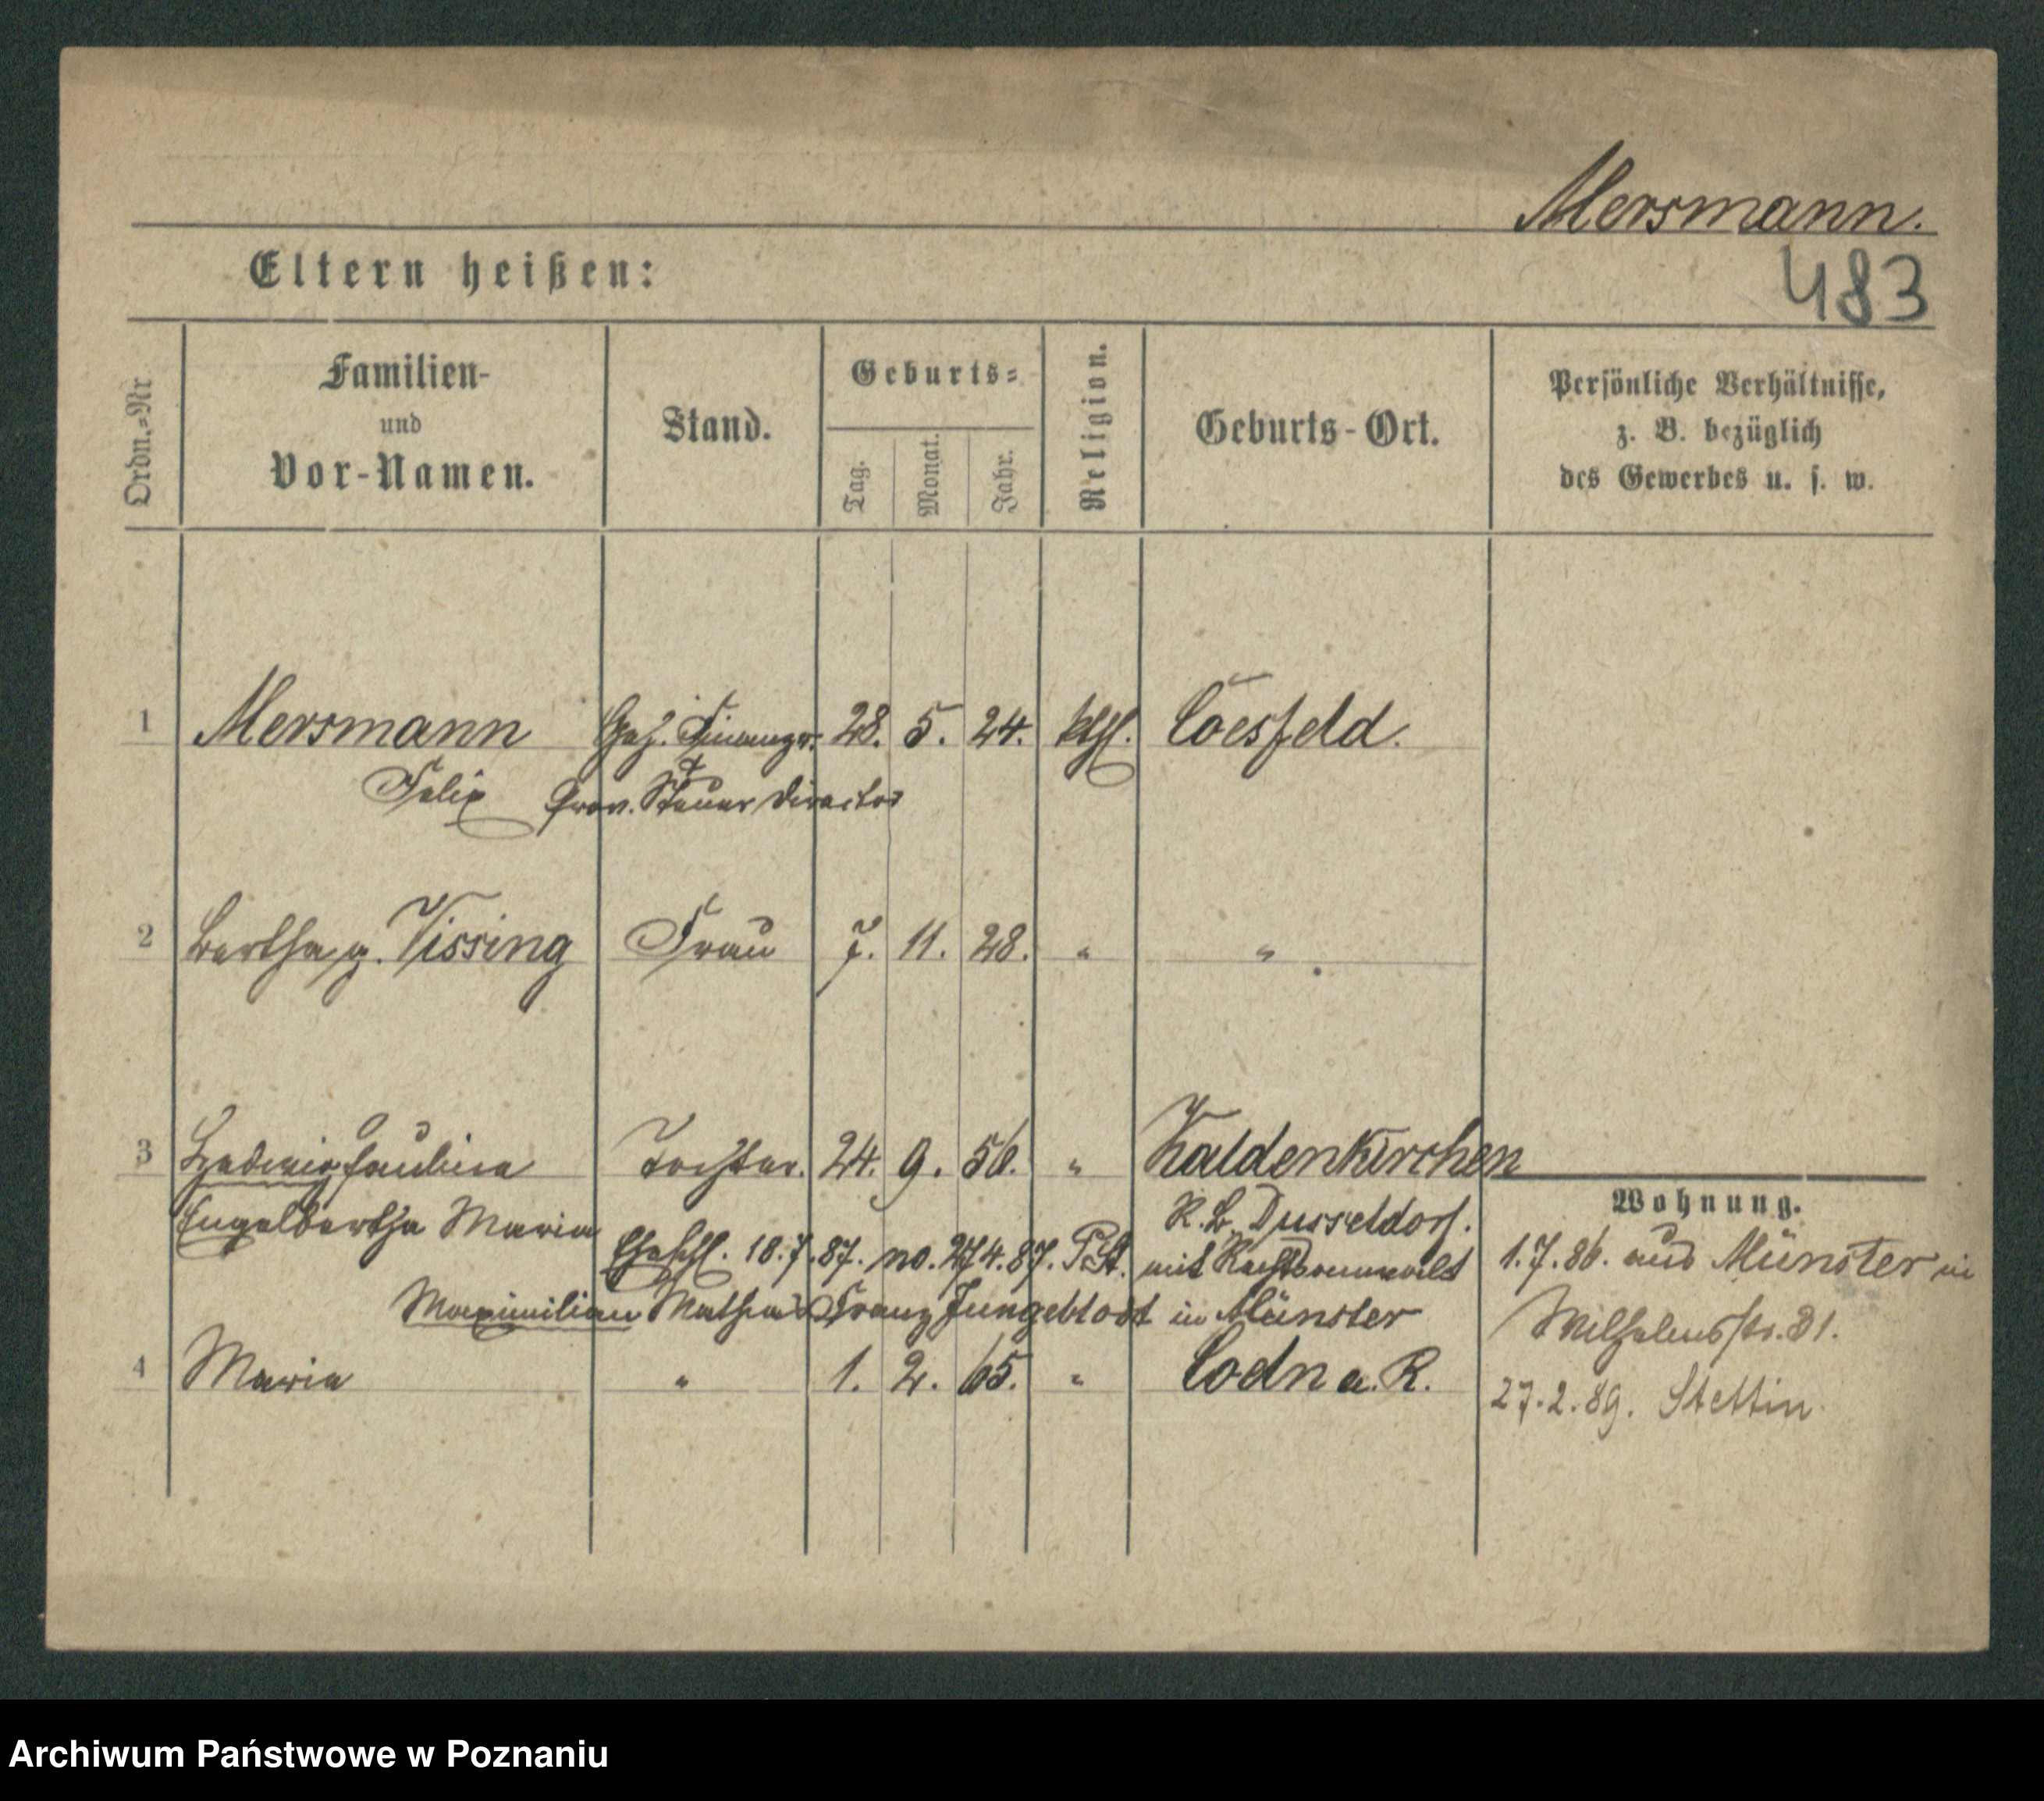 Mersmann.
483
Eltern heißen:
Ordn.-Nr.
Familien-
und
Vor-Namen.
Stand.
Geburts-
Tag.
Monat.
Jahr.
Religion.
Geburts-Ort.
Persönliche Verhältnisse,
z. B. bezüglich
des Gewerbes u. s. w.
1 Mersmann Geh. Finanzr. 28. 5. 24. kthl. Coesfeld.
Felix Prov. Steuer Director
2 Bertha g. Vissing Frau 7. 11. 28. " "
3 Hedwig Paulina Tochter. 24. 9. 56. " Kaldenkirchen
Wohnung.
Engelbertha Maria R. B. Dusseldorf.
Eheschl. 18.7.87. no. 274.87. P.St. mit Rechtsanwalt
1.7.86. aus Münster in
Maximilian Mathias Franz Jungeblodt in Münster
Wilhelmsstr. 31.
4 Maria " 1. 2. 65. " Cöln a. R.
27.2.89. Stettin
Archiwum Państwowe w Poznaniu